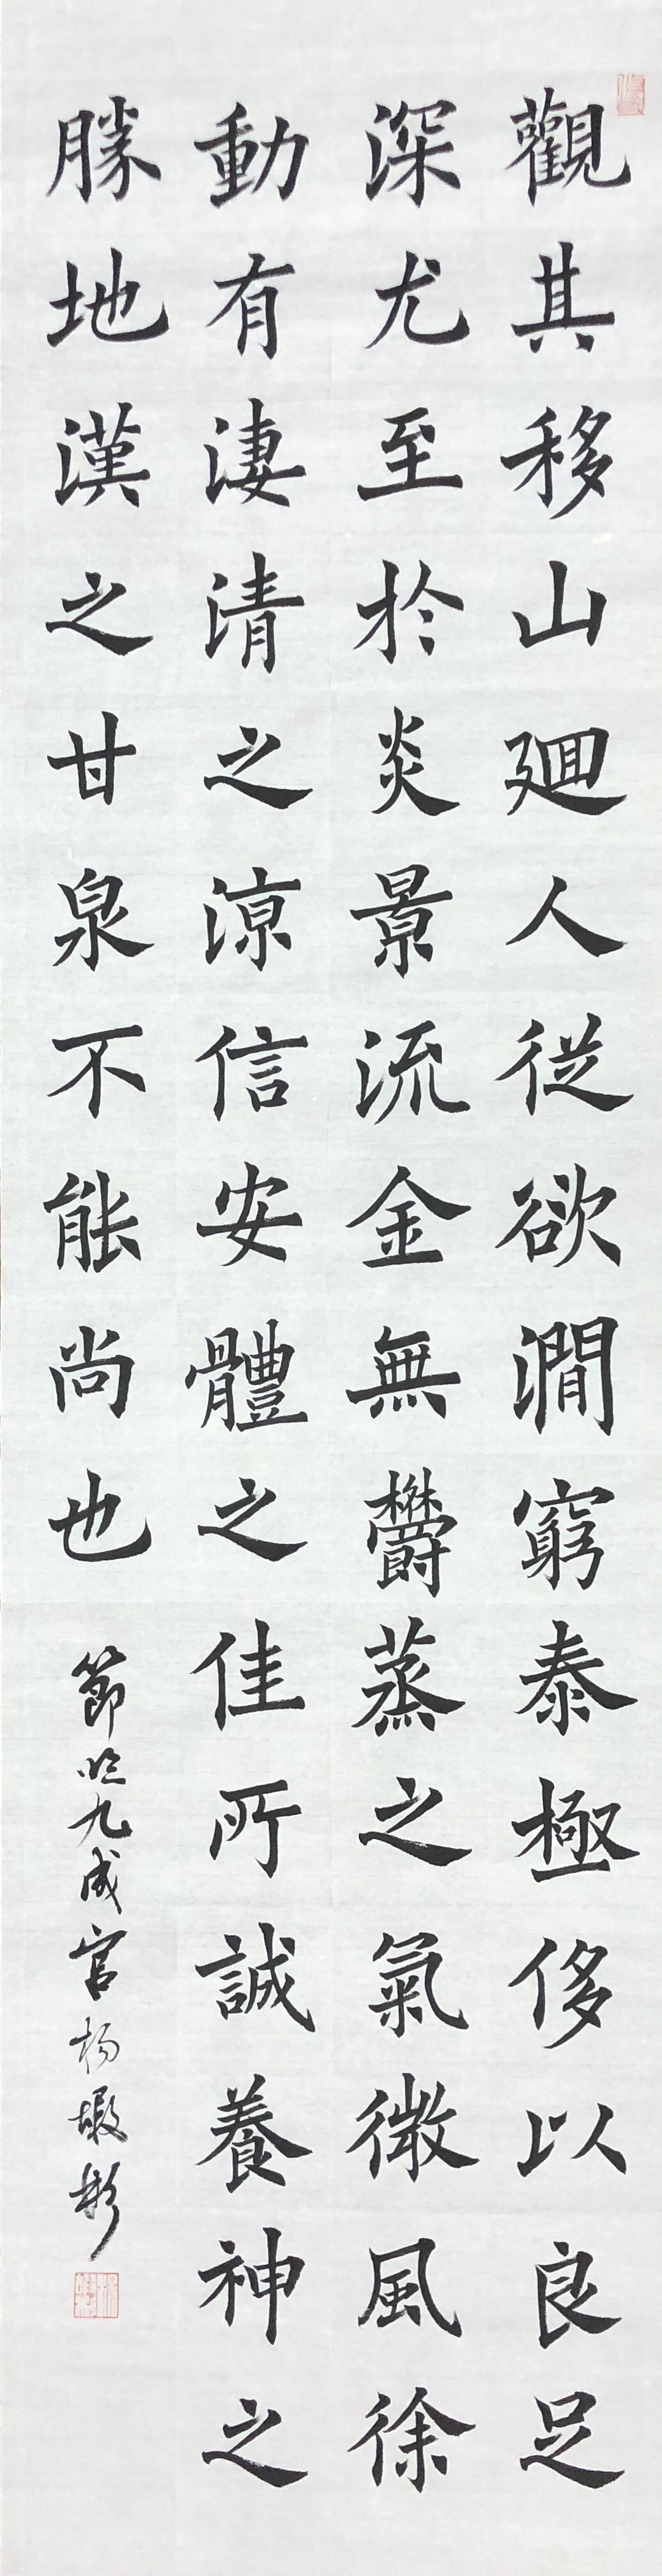 觀其移山廻人従欲澗窮泰極侈以良足
深尤至於炎景流金無欝蒸之氣微風徐
動有淒清之涼信安體之佳所誠養神之
勝地漢之甘泉不能尚也 節临九成宮 楊彬